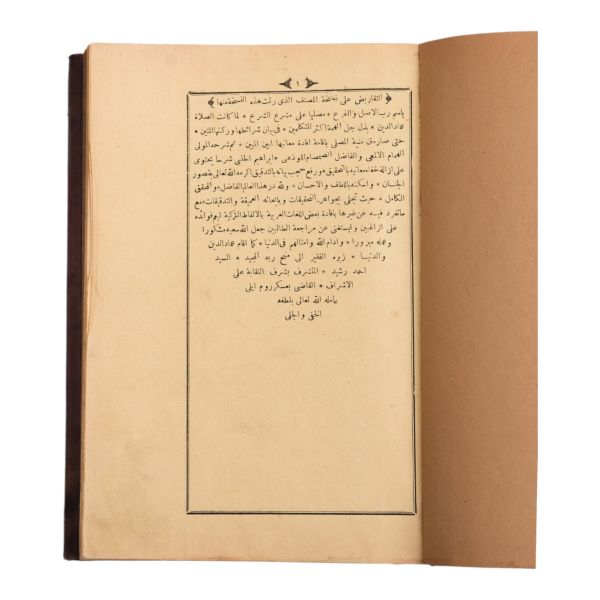 ١
﴿ التقاريض على نسخة المصنف الذى رتت هذه النسخة منها ﴾
باسم رب الاصل والفرع * مصليا على مشرع الشرع * لما كانت الصلاة
عماد الدين * بذل جل الهمة اكثر المتكلمين * فى بيان شرائطها وركنها المتين *
حتى صارمتن منية المصلى بافادة افادة معانيها ابين المبين * ثم شرحه المولى
الهمام الالمعى والفاضل الصمصام الموذعى * ابراهيم الحلبى شرحا يحتوى
على ازالة خفاء معانيه بالتحقيق * ورفع حجب بيانه بالتدقيق اكرمه الله تعالى بقصور
الجنان * واسكنه باللطف والاحسان * ولله در هذا العالم الفاضل * والمحقق
الكامل * حيث تجلى بجواهر التحقيقات وبابحاثه العميقة والتدقيقات * مع
ماتفرد فيه عن غيرها بافادة بعض اللغات العربية بالالفاظ التركية ليعم فوائده
على الراغبين ويستغنى عن مراجعة الطالبين جعل الله سعيه مشكورا
وعمله مبرورا * وادام الله وامثالهم فى الدنيا * كما اقام عماد الدين
والدنيا * زبره الفقير الى منح ربه المجيد * السيد
احمد رشيد * المتشرف بشرف النقابة على
الاشراف * القاضى بعسكر روم ايلى
عامله الله تعالى بلطفه
الخفى والجلى